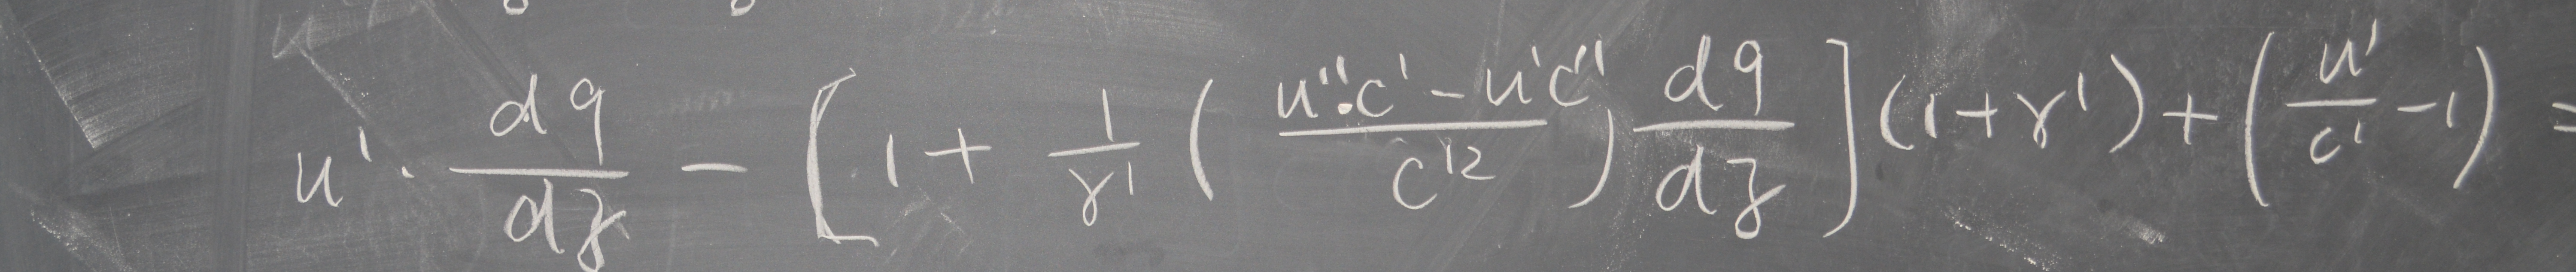 u' · dq/dz − [1 + 1/γ' ( (u''·c' − u'c'')/c'² ) dq/dz ] (1+γ') + ( u'/c' − 1 ) =